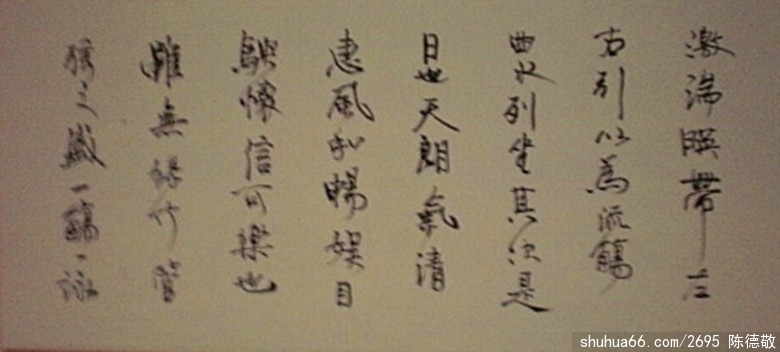 激湍暎帶左
右引以為流觴
曲水列坐其次是
日也天朗氣清
惠風和暢娛目
騁懷信可樂也
雖無絲竹管
弦之盛一觴一詠
shuhua66.com/2695 陈德敬